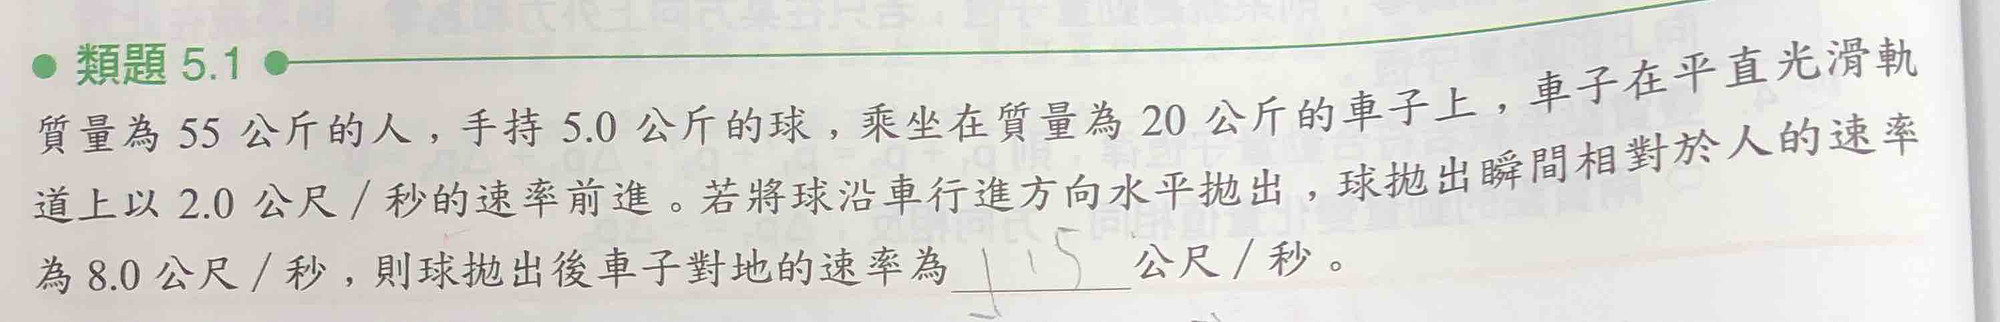 ● 類題 5.1 ●
質量為 55 公斤的人，手持 5.0 公斤的球，乘坐在質量為 20 公斤的車子上，車子在平直光滑軌
道上以 2.0 公尺／秒的速率前進。若將球沿車行進方向水平拋出，球拋出瞬間相對於人的速率
為 8.0 公尺／秒，則球拋出後車子對地的速率為 1.5 公尺／秒。